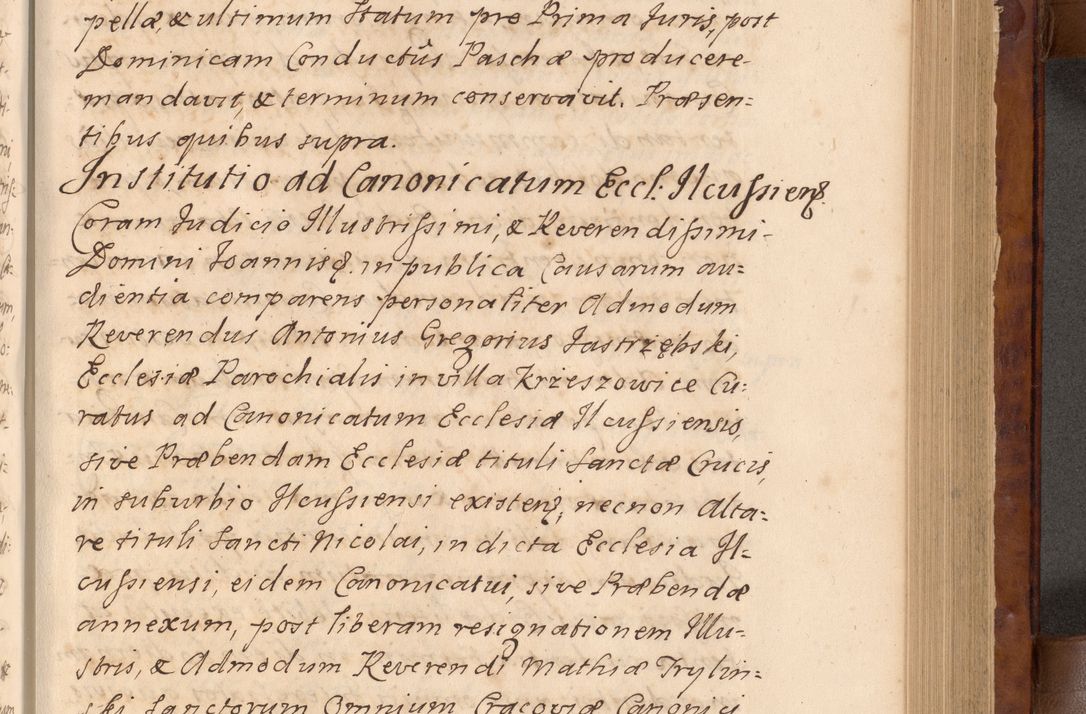 pellæ, & ultimum Statum pro Prima Juris, post
Dominicam Conductûs Paschæ producere
mandavit, & terminum conservavit. Præsen=
tibus quibus supra.
Institutio ad Canonicatum Eccl. Ilcussienẜ.
Coram Judicio Illustrissimi, & Reverendissimi
Domini Joannis &. in publica Causarum au=
dientia comparens personaliter Admodum
Reverendus Antonius Gregorius Jastrzębski,
Ecclesiæ Parochialis in villa Krzeszowice Cu=
ratus ad Canonicatum Ecclesiæ Ilcussiensis,
sive Præbendam Ecclesiæ tituli Sanctæ Crucis,
in suburbio Ilcussiensi existenẜ, necnon Alta=
re tituli Sancti Nicolai, in dicta Ecclesia Il=
cussiensi, eidem Canonicatui, sive Præbendæ
annexum, post liberam resignationem Illu=
stris, & Admodum Reverendi Mathiæ Trylin=
ski Sanctorum Omnium Cracoviæ Canonici